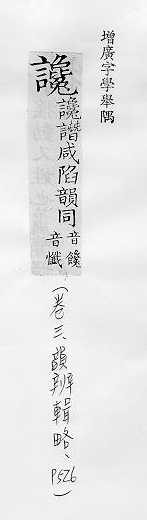 增廣字學舉隅
讒
讒譖咸陷韻同音饞音懺
(卷三、韻辨輯略、P526)